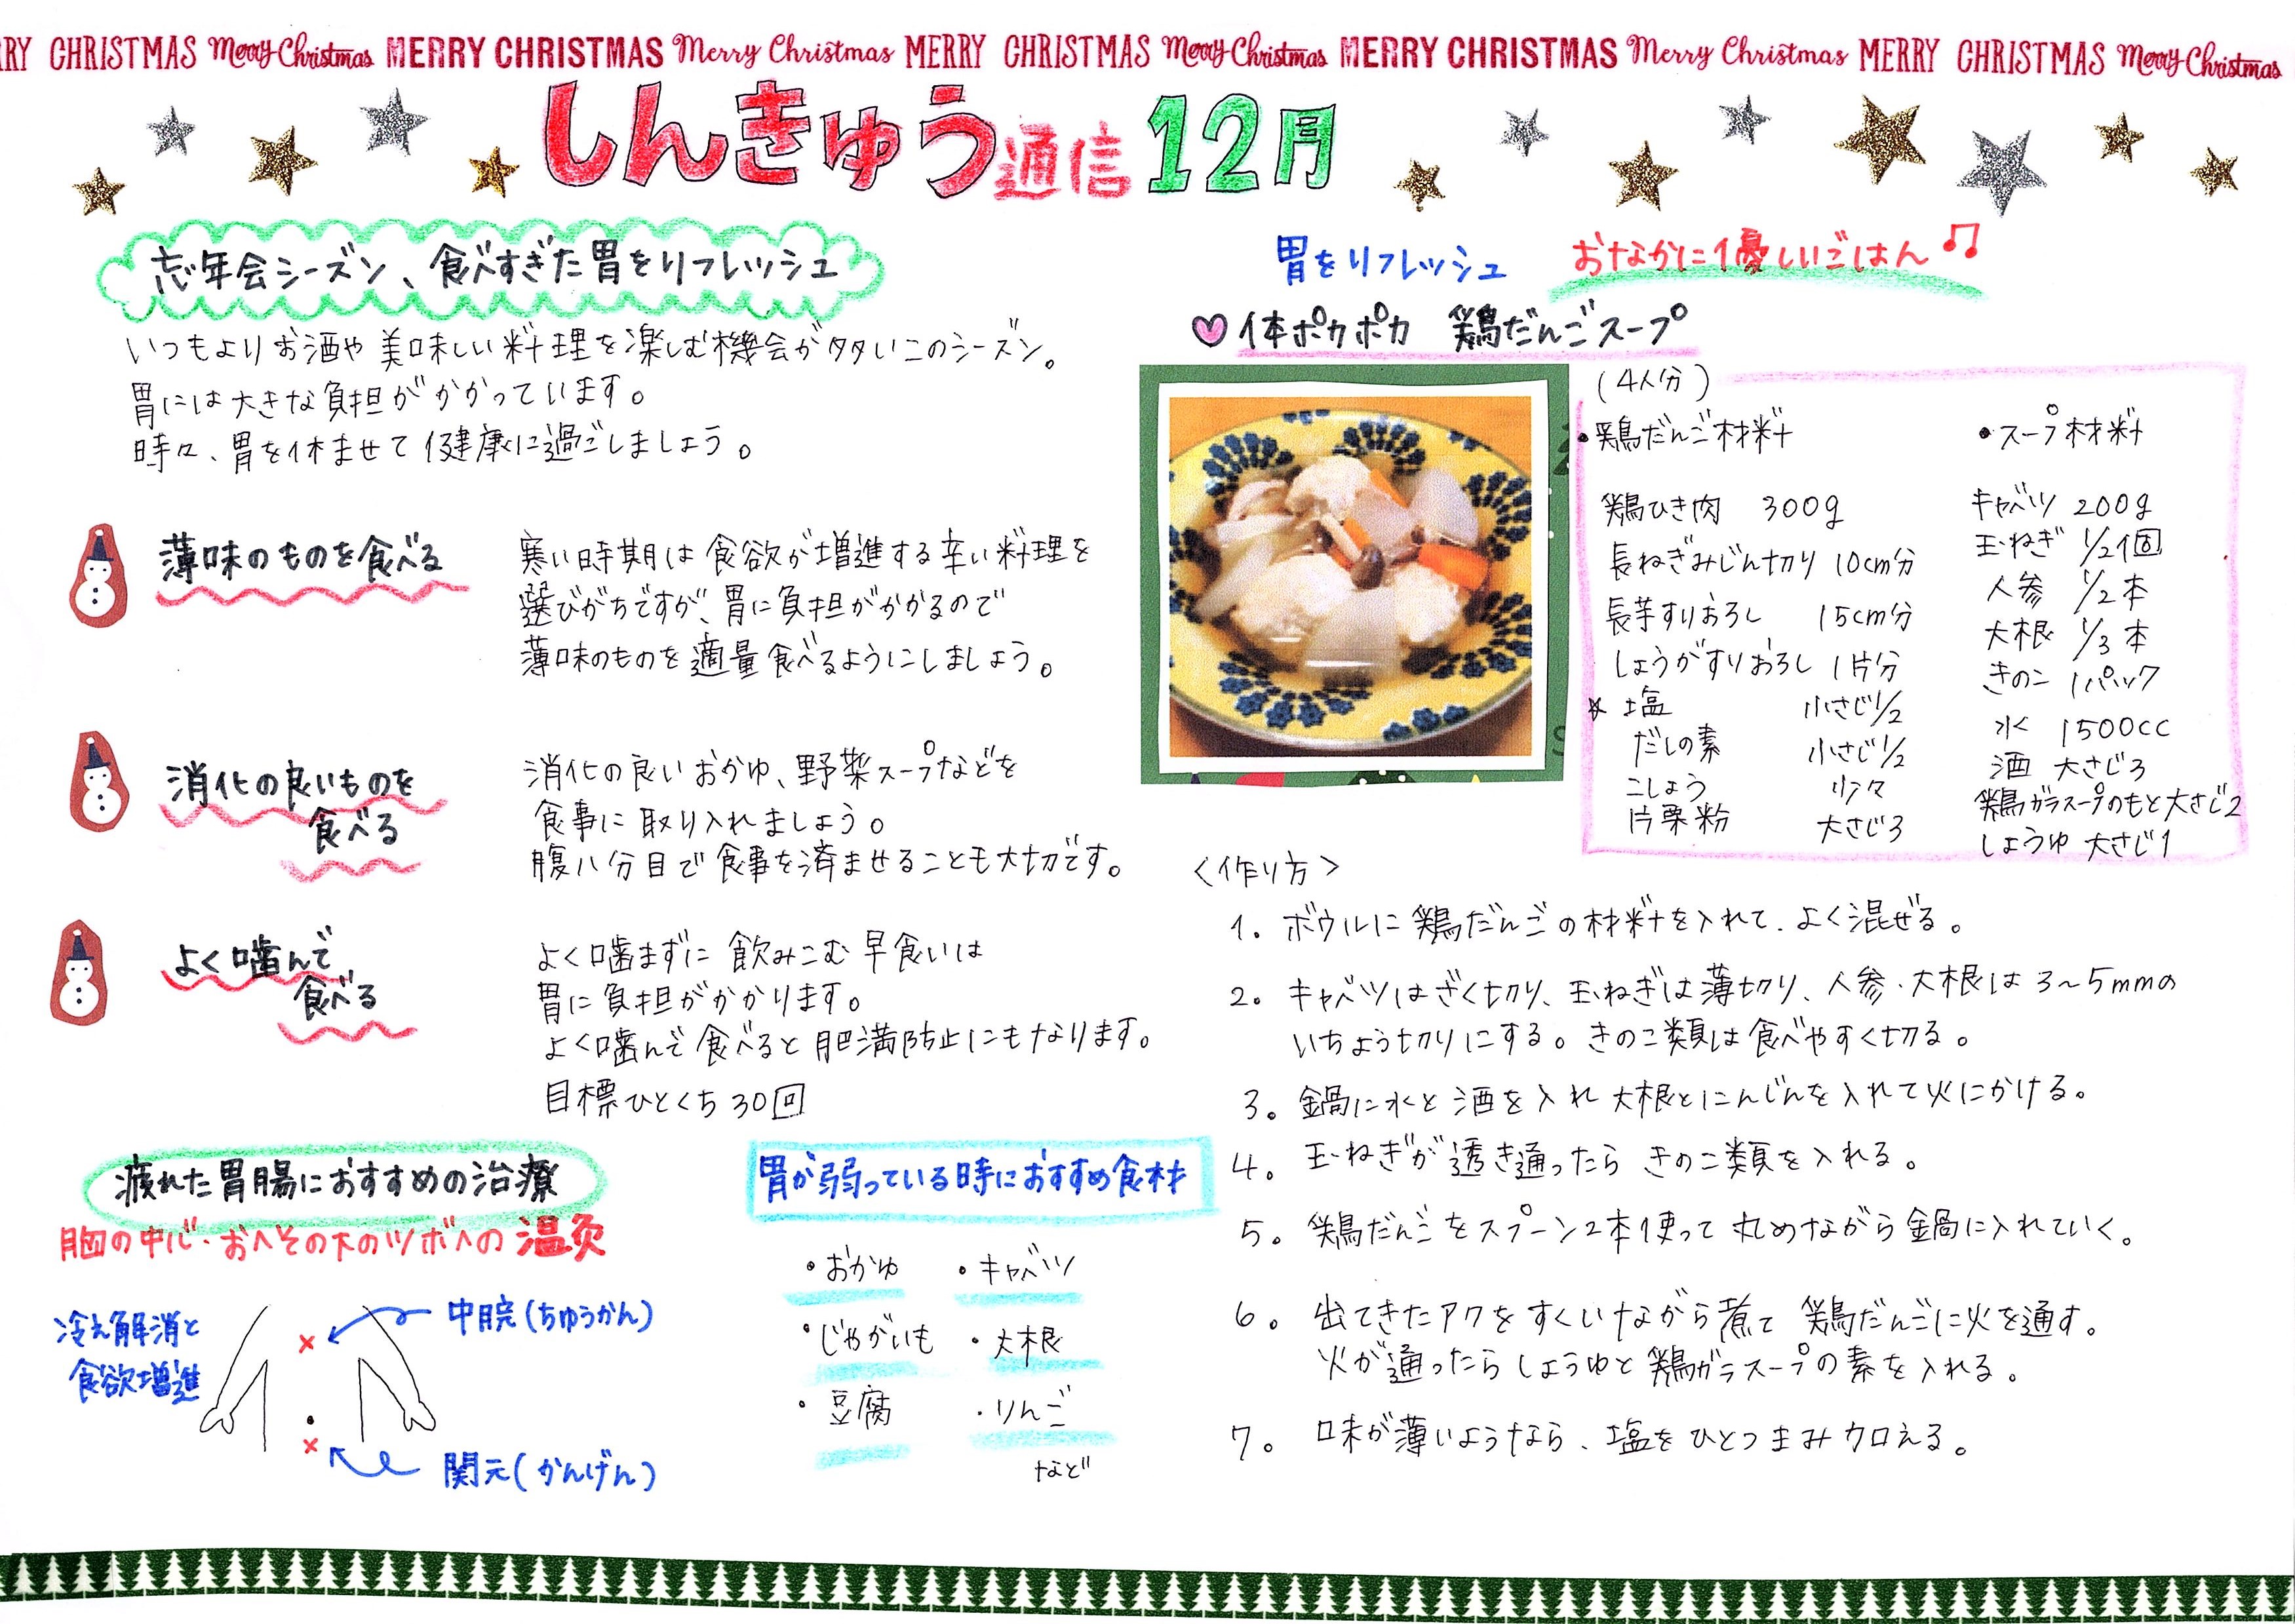 RRY CHRISTMAS Merry Christmas MERRY CHRISTMAS Merry Christmas MERRY CHRISTMAS Merry Christmas MERRY CHRISTMAS Merry Christmas MERRY CHRISTMAS Merry Christmas
しんきゅう通信 12月
忘年会シーズン、食べすぎた胃をリフレッシュ
いつもよりお酒や美味しい料理を楽しむ機会が多いこのシーズン。
胃には大きな負担がかかっています。
時々、胃を休ませて健康に過ごしましょう。
薄味のものを食べる
寒い時期は食欲が増進する辛い料理を
選びがちですが、胃に負担がかかるので
薄味のものを適量食べるようにしましょう。
消化の良いものを
食べる
消化の良いおかゆ、野菜スープなどを
食事に取り入れましょう。
腹八分目で食事を済ませることも大切です。
よく噛んで
食べる
よく噛まずに飲みこむ早食いは
胃に負担がかかります。
よく噛んで食べると肥満防止にもなります。
目標ひとくち30回
疲れた胃腸におすすめの治療
胸の中心・おへその下のツボへの温灸
冷え解消と
食欲増進
中脘(ちゅうかん)
関元(かんげん)
胃が弱っている時におすすめ食材
・おかゆ ・キャベツ
・じゃがいも ・大根
・豆腐 ・りんご
など
胃をリフレッシュ おなかに優しいごはん♫
♥体ポカポカ 鶏だんごスープ
(4人分)
・鶏だんご材料
鶏ひき肉 300g
長ねぎみじん切り 10cm分
長芋すりおろし 15cm分
しょうがすりおろし 1片分
☆塩 小さじ1/2
だしの素 小さじ1/2
こしょう 少々
片栗粉 大さじ3
・スープ材料
キャベツ 200g
玉ねぎ 1/2個
人参 1/2本
大根 1/3本
きのこ 1パック
水 1500cc
酒 大さじ3
鶏ガラスープのもと大さじ2
しょうゆ 大さじ1
<作り方>
1。ボウルに鶏だんごの材料を入れて、よく混ぜる。
2。キャベツはざく切り、玉ねぎは薄切り、人参・大根は3〜5mmの
いちょう切りにする。きのこ類は食べやすく切る。
3。鍋に水と酒を入れ大根とにんじんを入れて火にかける。
4。玉ねぎが透き通ったらきのこ類を入れる。
5。鶏だんごをスプーン2本使って丸めながら鍋に入れていく。
6。出てきたアクをすくいながら煮て鶏だんごに火を通す。
火が通ったらしょうゆと鶏ガラスープの素を入れる。
7。味が薄いようなら、塩をひとつまみ加える。